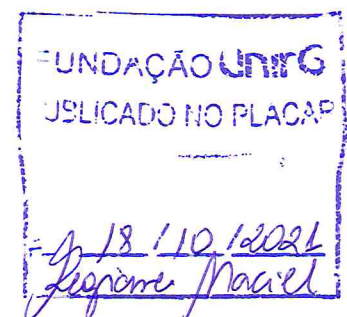 FUNDAÇÃO UnirG
UBLICADO NO PLACAR
18 / 10 / 2021
Maciel